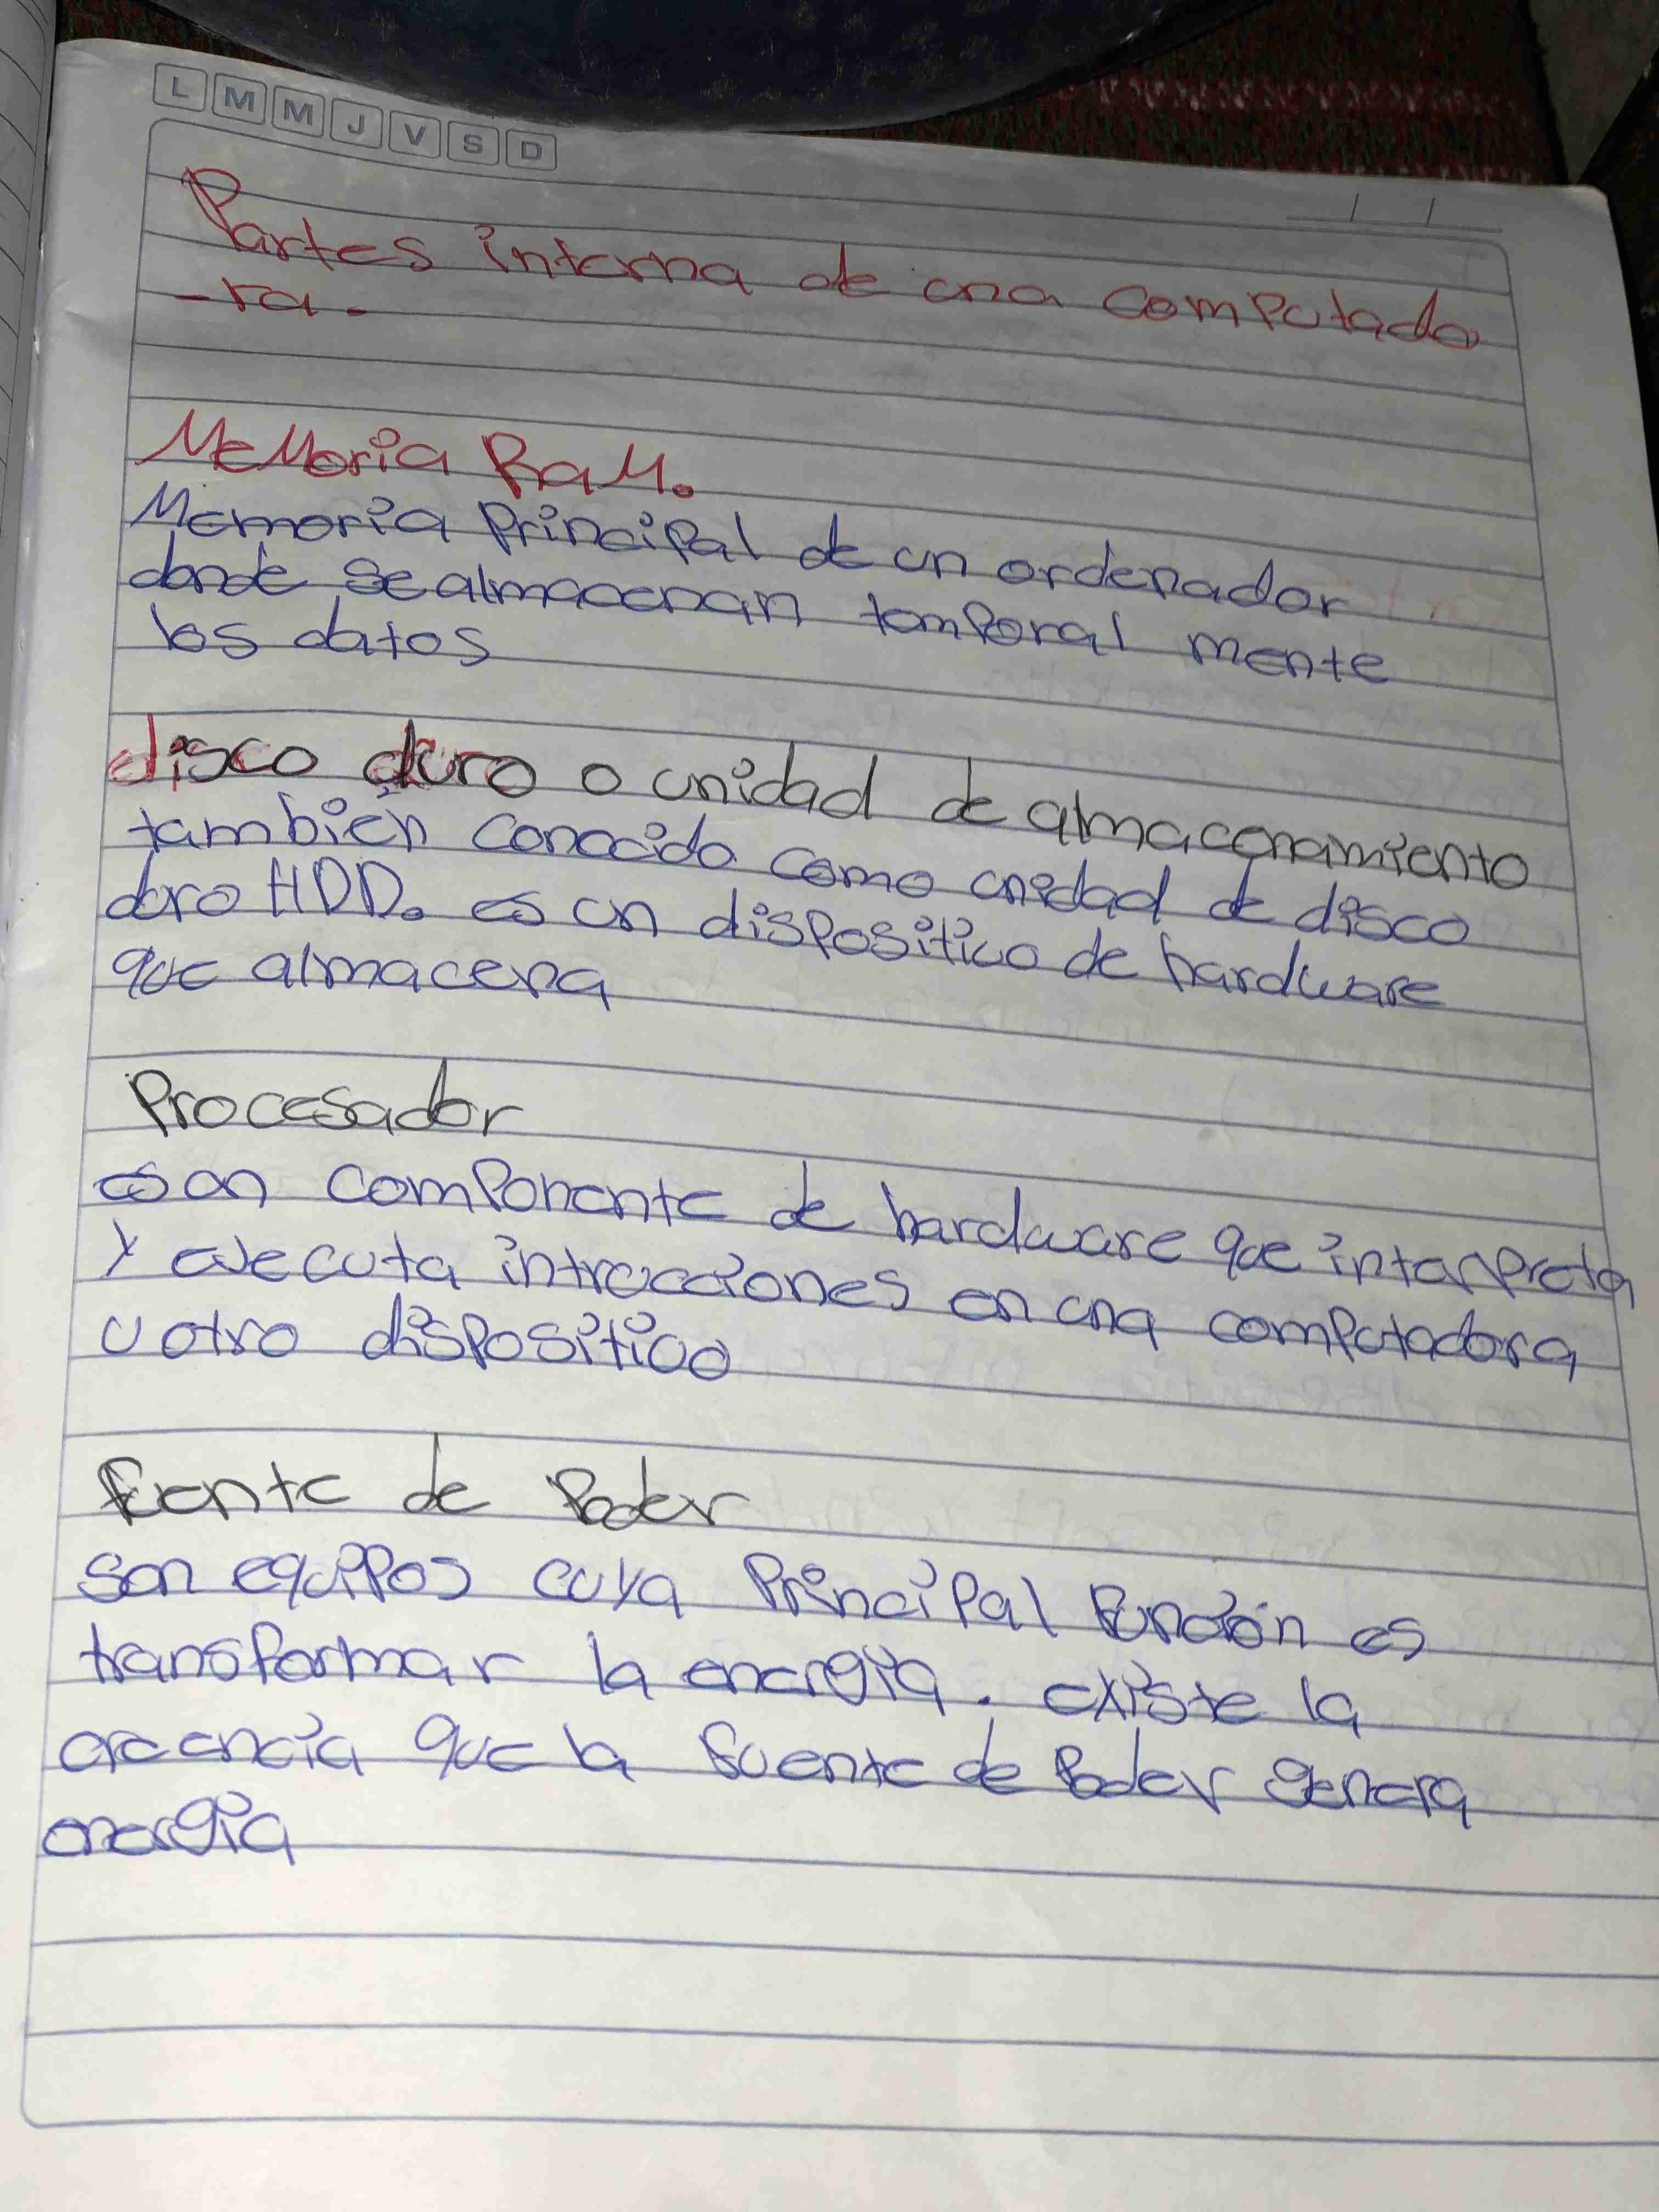 L M M J V S D
Partes interna de una computado
-ra.
Memoria RaM.
Memoria Principal de un ordenador
donde se almacenan temporal mente
los datos
disco duro o unidad de almacenamiento
también conocido como unidad de disco
duro HDD. es un dispositivo de hardware
que almacena
Procesador
es un componente de hardware que interpreta
y ejecuta intrucciones en una computadora
u otro dispositivo
fuente de Poder
son equipos cuya Principal función es
transformar la energía. existe la
creencia que la fuente de Poder genera
energia